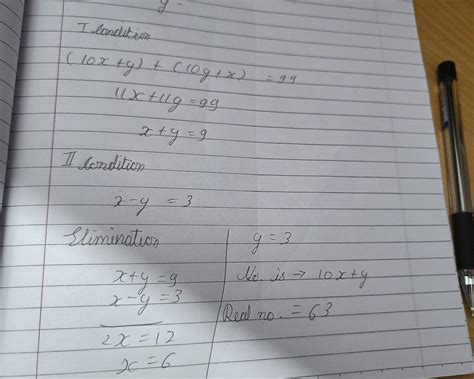 y -
I condition
(10x+y) + (10y+x) = 99
11x+11y=99
x+y=9
II condition
x-y = 3
Elimination
x+y=9
x-y=3
2x=12
x=6
y=3
No. is → 10x+y
Real no. = 63